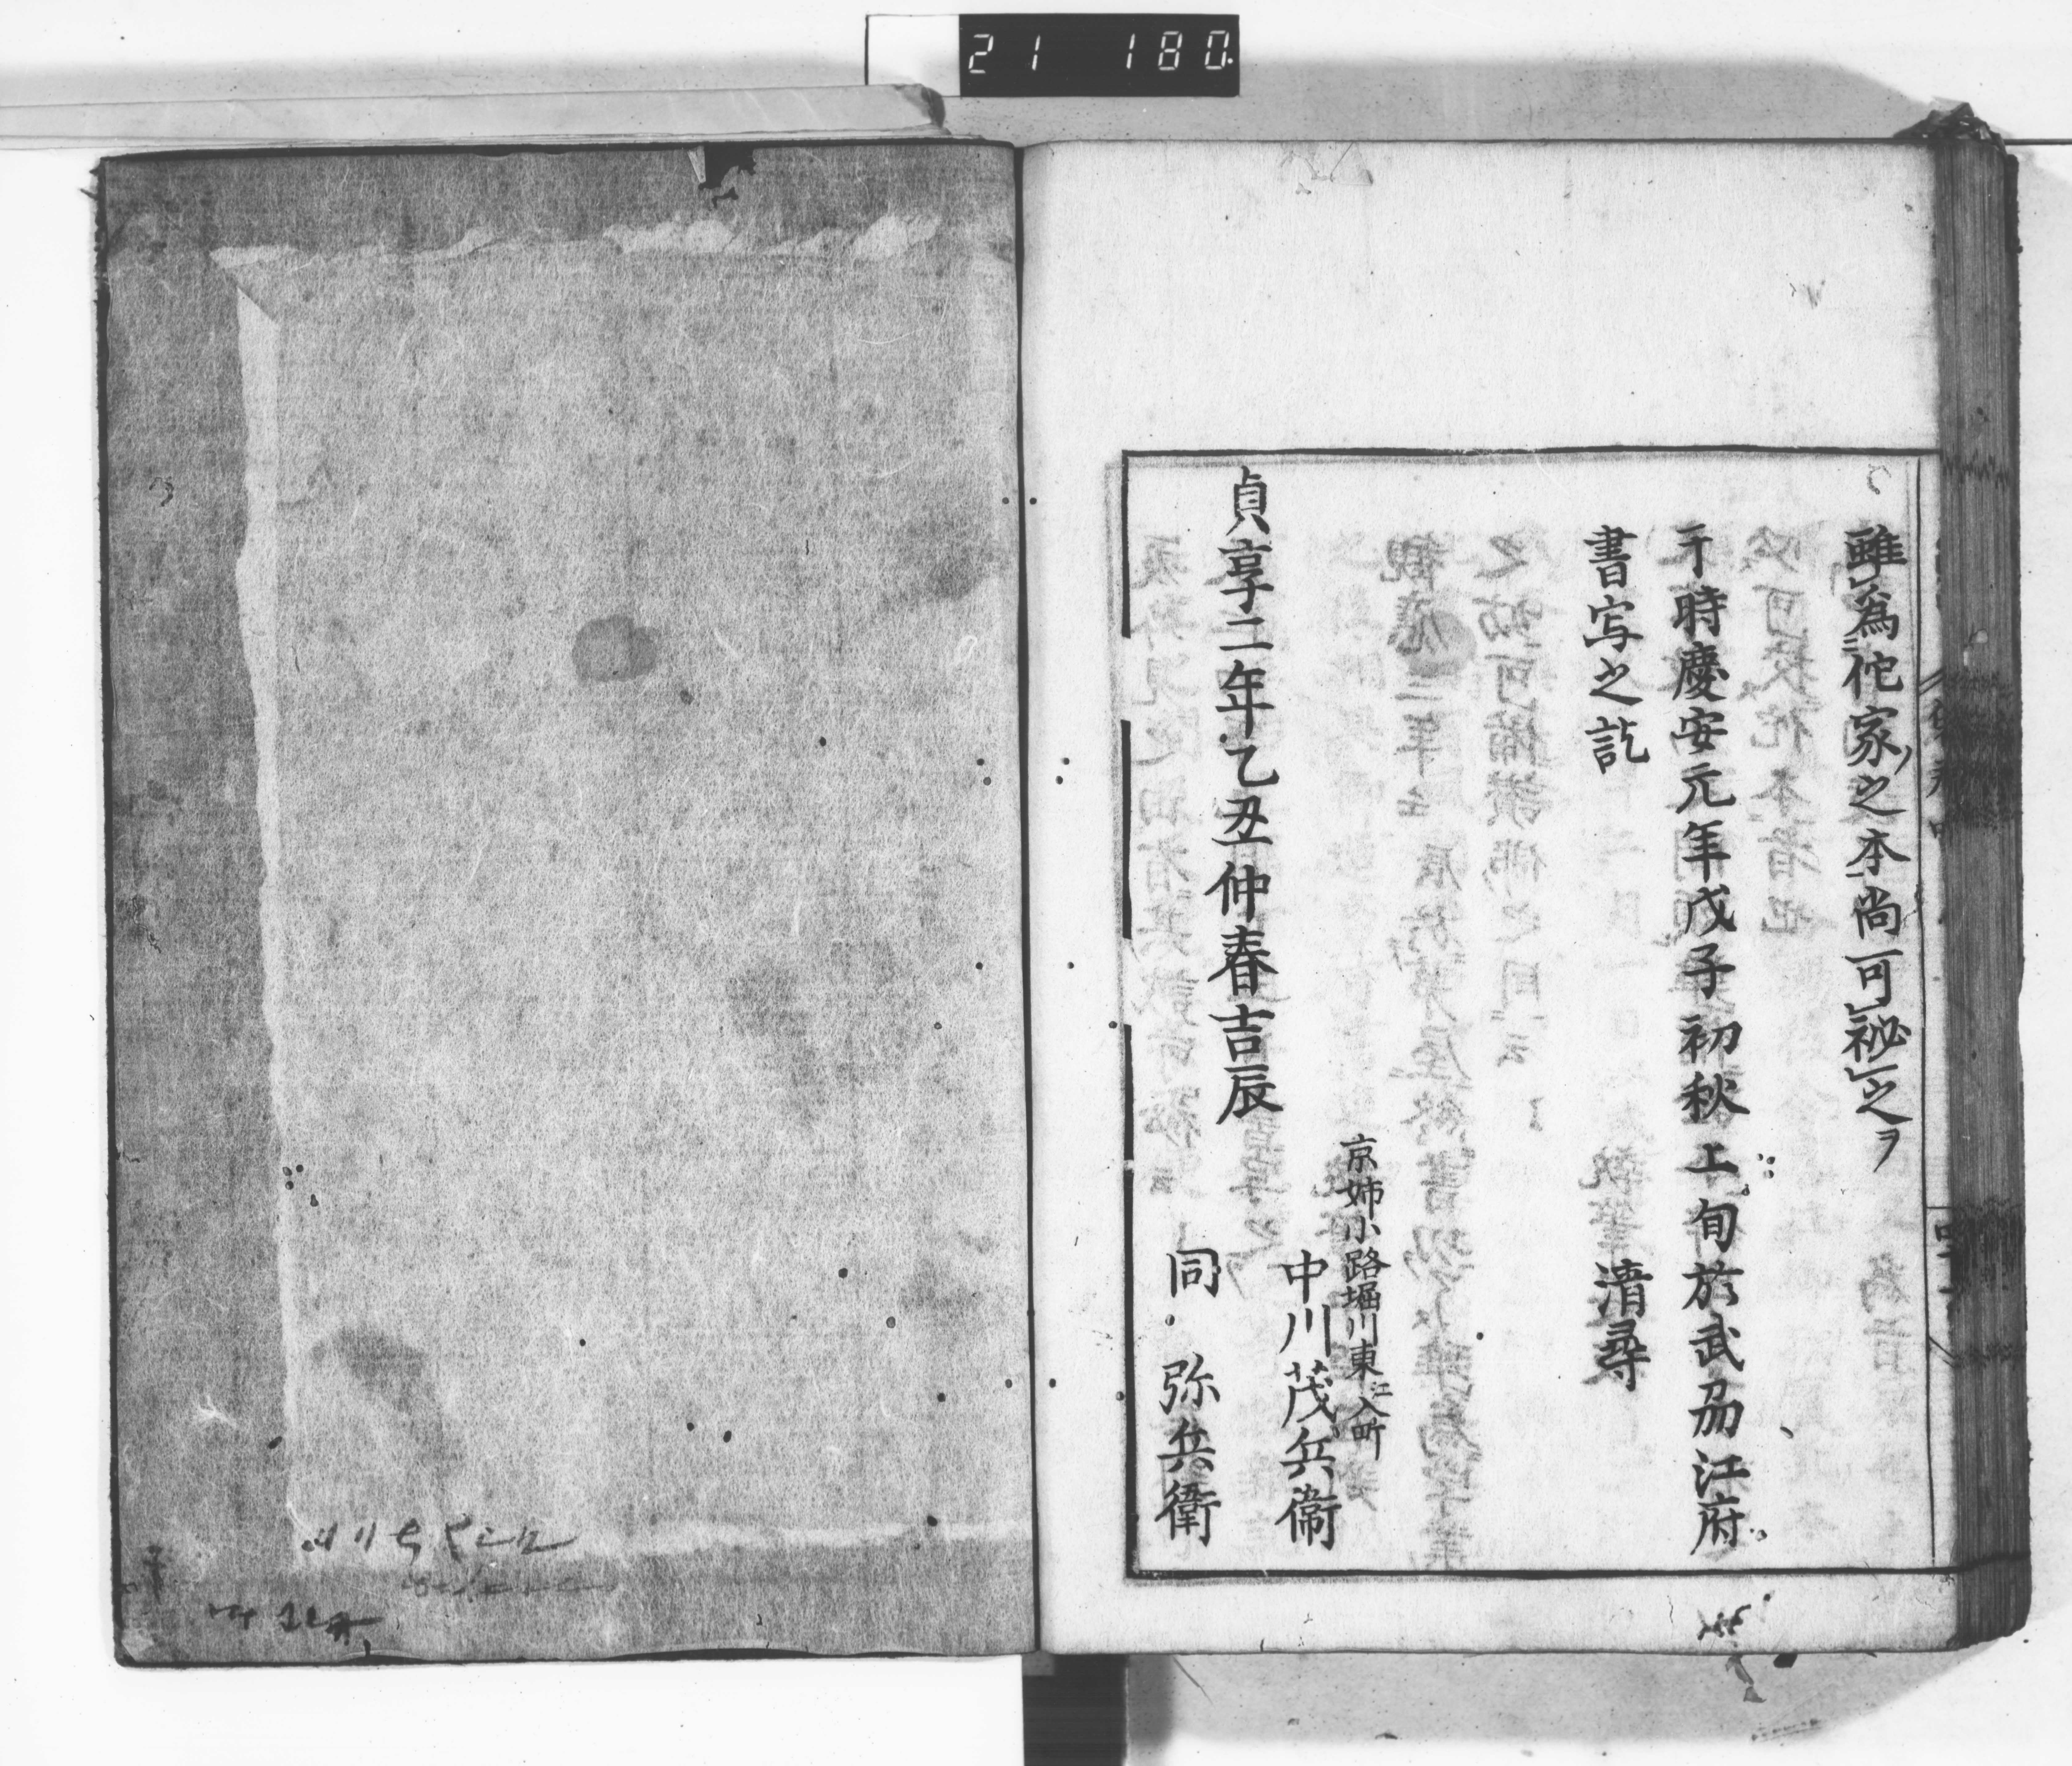 21 180
雖為佗家之本尚可秘之ヲ
于時慶安元年戊子初秋上旬於武刕江府
書写之訖 清尋
貞享二年乙丑仲春吉辰
京姉小路堀川東江入町
中川茂兵衞
同 弥兵衛